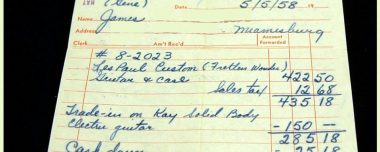 (Gene) 5/5/58 19
Name James
Address Miamisburg
Clerk Am't Rec'd Account Forwarded
# 8-2023
Les Paul Custom (Fretless Wonder)
Guitar & Case 422 50
Sales tax 12 68
435 18
Trade-in on Kay Solid Body
Electric guitar -150 —
285 18
Cash down - 25 18